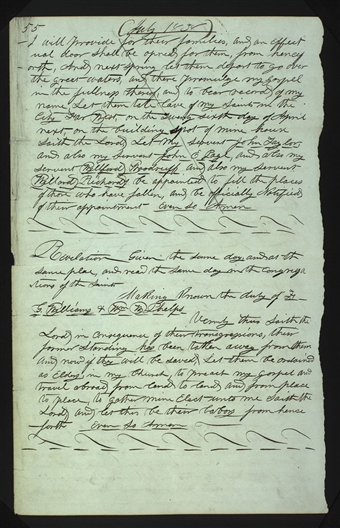 55
July 1838
I will provide for their families, and an effect
ual door shall be opned for them, from hence
forth, And next spring let them depart to go over
the great waters, and there promulge my Gospel
in the fullness thereof, and to bear record of my
name. Let them take leave of my Saints in the
City Far West, on the Twenty sixth day of April
next, on the building spot of mine house
saith the Lord, Let my servent John Taylor,
and also my servent John E. Page, and also my
servent Willford Woodruff and also my servent
Willard Richards be appointed to fill the places
of those who have fallen, and be officially Notified
of their appointment Even so Amen.
Revelation Given the same day, and at the
same place, and read the same day in the congrega
tions of the Saints
Making known the duty of F.
G. Williams & Wm W. Phelps
Verrily thus Saith the
Lord in consequence of their transgressions, their
former standing has been taken away from them
and now if they will be saved, Let them be ordained
as Elders, in my Church, to preach my Gospel and
travel abroad from land to land and from place
to place, to gather mine Elect unto me Saith the
Lord, and let this be their labors from hence
forth Even So Amen